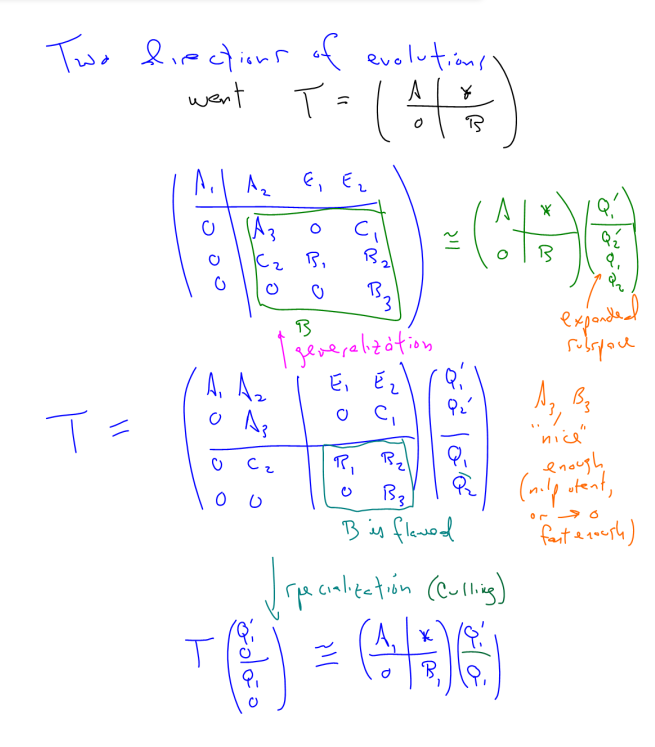 Two directions of evolutions
want T = ( A | * / 0 | B )
( A₁ | A₂ E₁ E₂ / 0 | A₃ 0 C₁ / 0 | C₂ B₁ B₂ / 0 | 0 0 B₃ ) ≅ ( A | * / 0 | B ) ( Q₁' / Q₂' Q₁ Q₂ )
B
expanded
subspace
↑ generalization
T = ( A₁ A₂ | E₁ E₂ / 0 A₃ | 0 C₁ / 0 C₂ | B₁ B₂ / 0 0 | 0 B₃ ) ( Q₁' Q₂' / Q₁ Q₂ )
A₃, B₃
"nice"
enough
(nilpotent,
or → 0
fast enough)
B is flawed
↓ specialization (Culling)
T ( Q₁' 0 / Q₁ 0 ) ≅ ( A₁ | * / 0 | B₁ ) ( Q₁' / Q₁ )